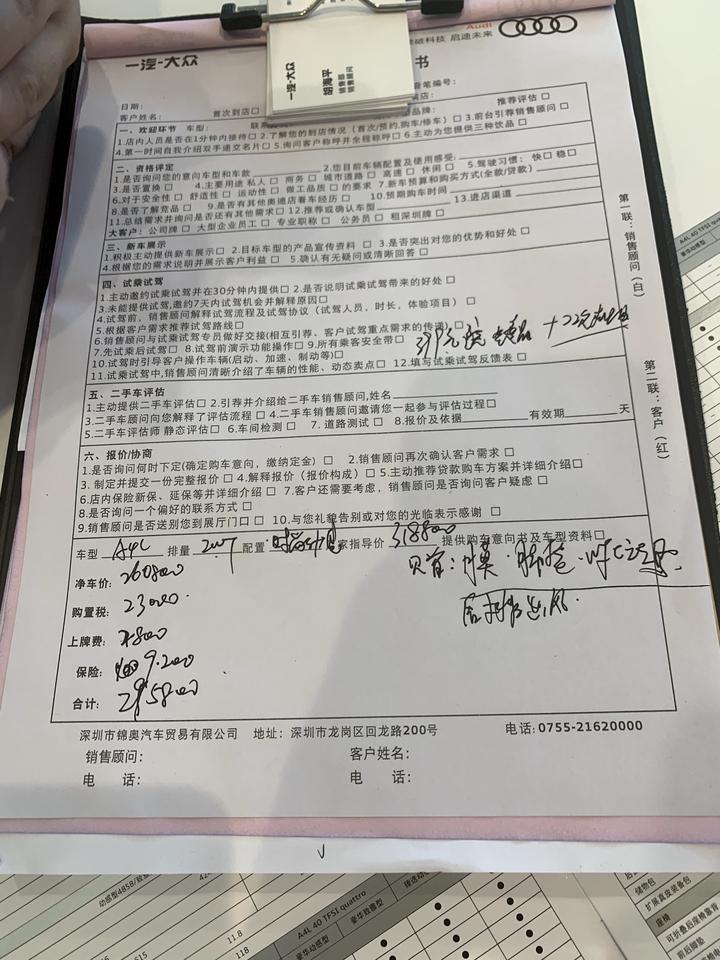 Audi
突破科技 启迪未来
一汽-大众
书
一汽-大众
胡海平
销售部
销售顾问
日期：
客户姓名：
首次到店□
推荐评估 □
一、欢迎环节 车型：
1.店内人员是否在1分钟内接待□ 2.了解您的到店情况（首次/预约,购车/修车）□ 3.前台引荐销售顾问 □
4.第一时间自我介绍双手递交名片□ 5.询问客户称呼并全程称呼□ 6.主动为您提供三种饮品 □
二、资格评定
1.是否询问您的意向车型和车款 2.您目前车辆配置及使用感受： 5.驾驶习惯： 快□ 稳□
3.是否置换 □ 4.主要用途 私人 □ 商务 □ 城市道路 □ 高速 □ 休闲 □
6.对于安全性 □ 舒适性 □ 运动性 □ 做工品质 □ 的要求 7.新车预算和购买方式(全款/贷款)
8.是否了解竞品 □ 9.是否有其他奥迪店看车经历 □ 10.预期购车时间
11.总结需求并询问是否还有其他需求□ 12.推荐或确认车型 13.进店渠道
大客户：公司牌 □ 大型企业员工 □ 专业职称 □ 公务员 □ 租深圳牌 □
三、新车展示
1.积极主动提供新车展示□ 2.目标车型的产品宣传资料 □ 3.是否突出对您的优势和好处 □
4.根据您的需求说明并展示客户利益 □ 5.确认有无疑问或清晰回答 □
四、试乘试驾
1.主动邀约试乘试驾并在30分钟内提供□ 2.是否说明试乘试驾带来的好处 □
3.未能提供试驾,邀约7天内试驾机会并解释原因□
4.试驾前，销售顾问解释试驾流程及试驾协议（试驾人员，时长，体验项目）□
5.根据客户需求推荐试驾路线□
6.销售顾问与试驾专员做好交接(相互引荐、客户试驾重点需求的传递)□
7.先试乘后试驾□ 8.试驾前演示功能操作□ 9.所有乘客安全带□
10.试驾时引导客户操作车辆(启动、加速、制动等)□
11.试乘试驾中,销售顾问清晰介绍了车辆的性能、动态卖点□ 12.填写试乘试驾反馈表 □
五、二手车评估
1.主动提供二手车评估□ 2.引荐并介绍给二手车销售顾问,姓名
3.二手车顾问向您解释了评估流程 □ 4.二手车销售顾问邀请您一起参与评估过程□
5.二手车评估师 静态评估□ 6.车间检测 □ 7.道路测试 □ 8.报价及依据 有效期 天
六、报价/协商
1.是否询问何时下定(确定购车意向，缴纳定金) □ 2.销售顾问再次确认客户需求 □
3. 制定并提交一份完整报价 □ 4.解释报价（报价构成）□ 5.主动推荐贷款购车方案并详细介绍□
6.店内保险新保、延保等并详细介绍 □ 7.客户还需要考虑，销售顾问是否询问客户疑虑 □
8.是否询问一个偏好的联系方式 □
9.销售顾问是否送别您到展厅门口 □ 10.与您礼貌告别或对您的光临表示感谢 □
车型 A4L 排量 配置 家指导价 318800 提供购车意向书及车型资料□
净车价： 260800
购置税： 23000
上牌费：
保险： 9.200
合计： 295800
第一联：销售顾问（白）
第二联：客户（红）
深圳市锦奥汽车贸易有限公司 地址：深圳市龙岗区回龙路200号 电话: 0755-21620000
销售顾问： 客户姓名：
电 话： 电 话：
A4L 40 TFSI quattro
豪华动感型
豪华致雅型
11.8
118
储物包
扩展真皮装备包
座椅
可折叠后座椅靠背
前后脚垫